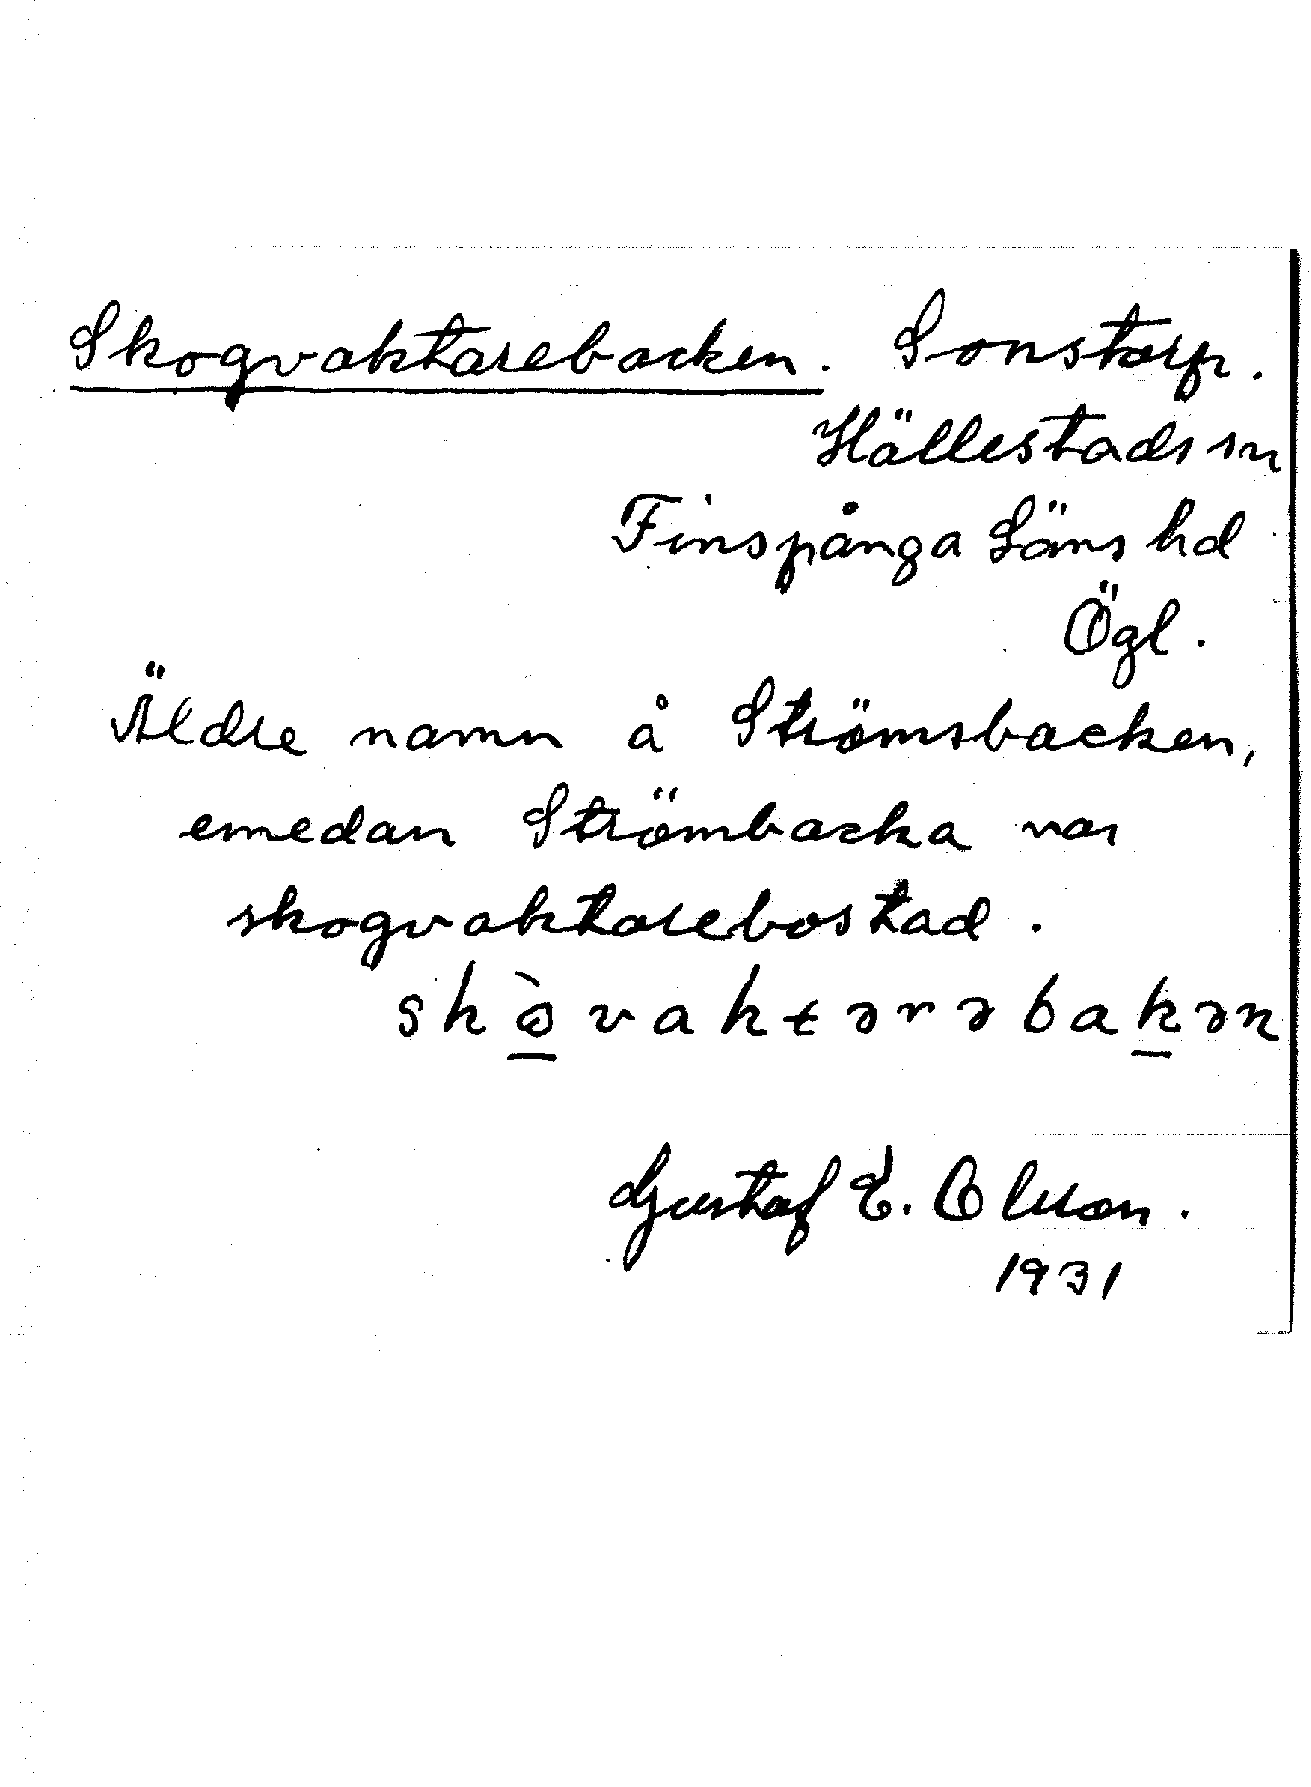 Skogvaktarebacken. Sonstorp.
Hällestads sn
Finspånga Läns hd
Ögl.
Äldre namn å Strömsbacken,
emedan Strömbacka var
skogvaktarebostad.
skò̱vaktərəbaḵən
Gustaf E. Olsson.
1931